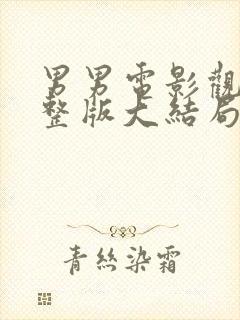 男男電影觀
整版大結局
青絲染霜